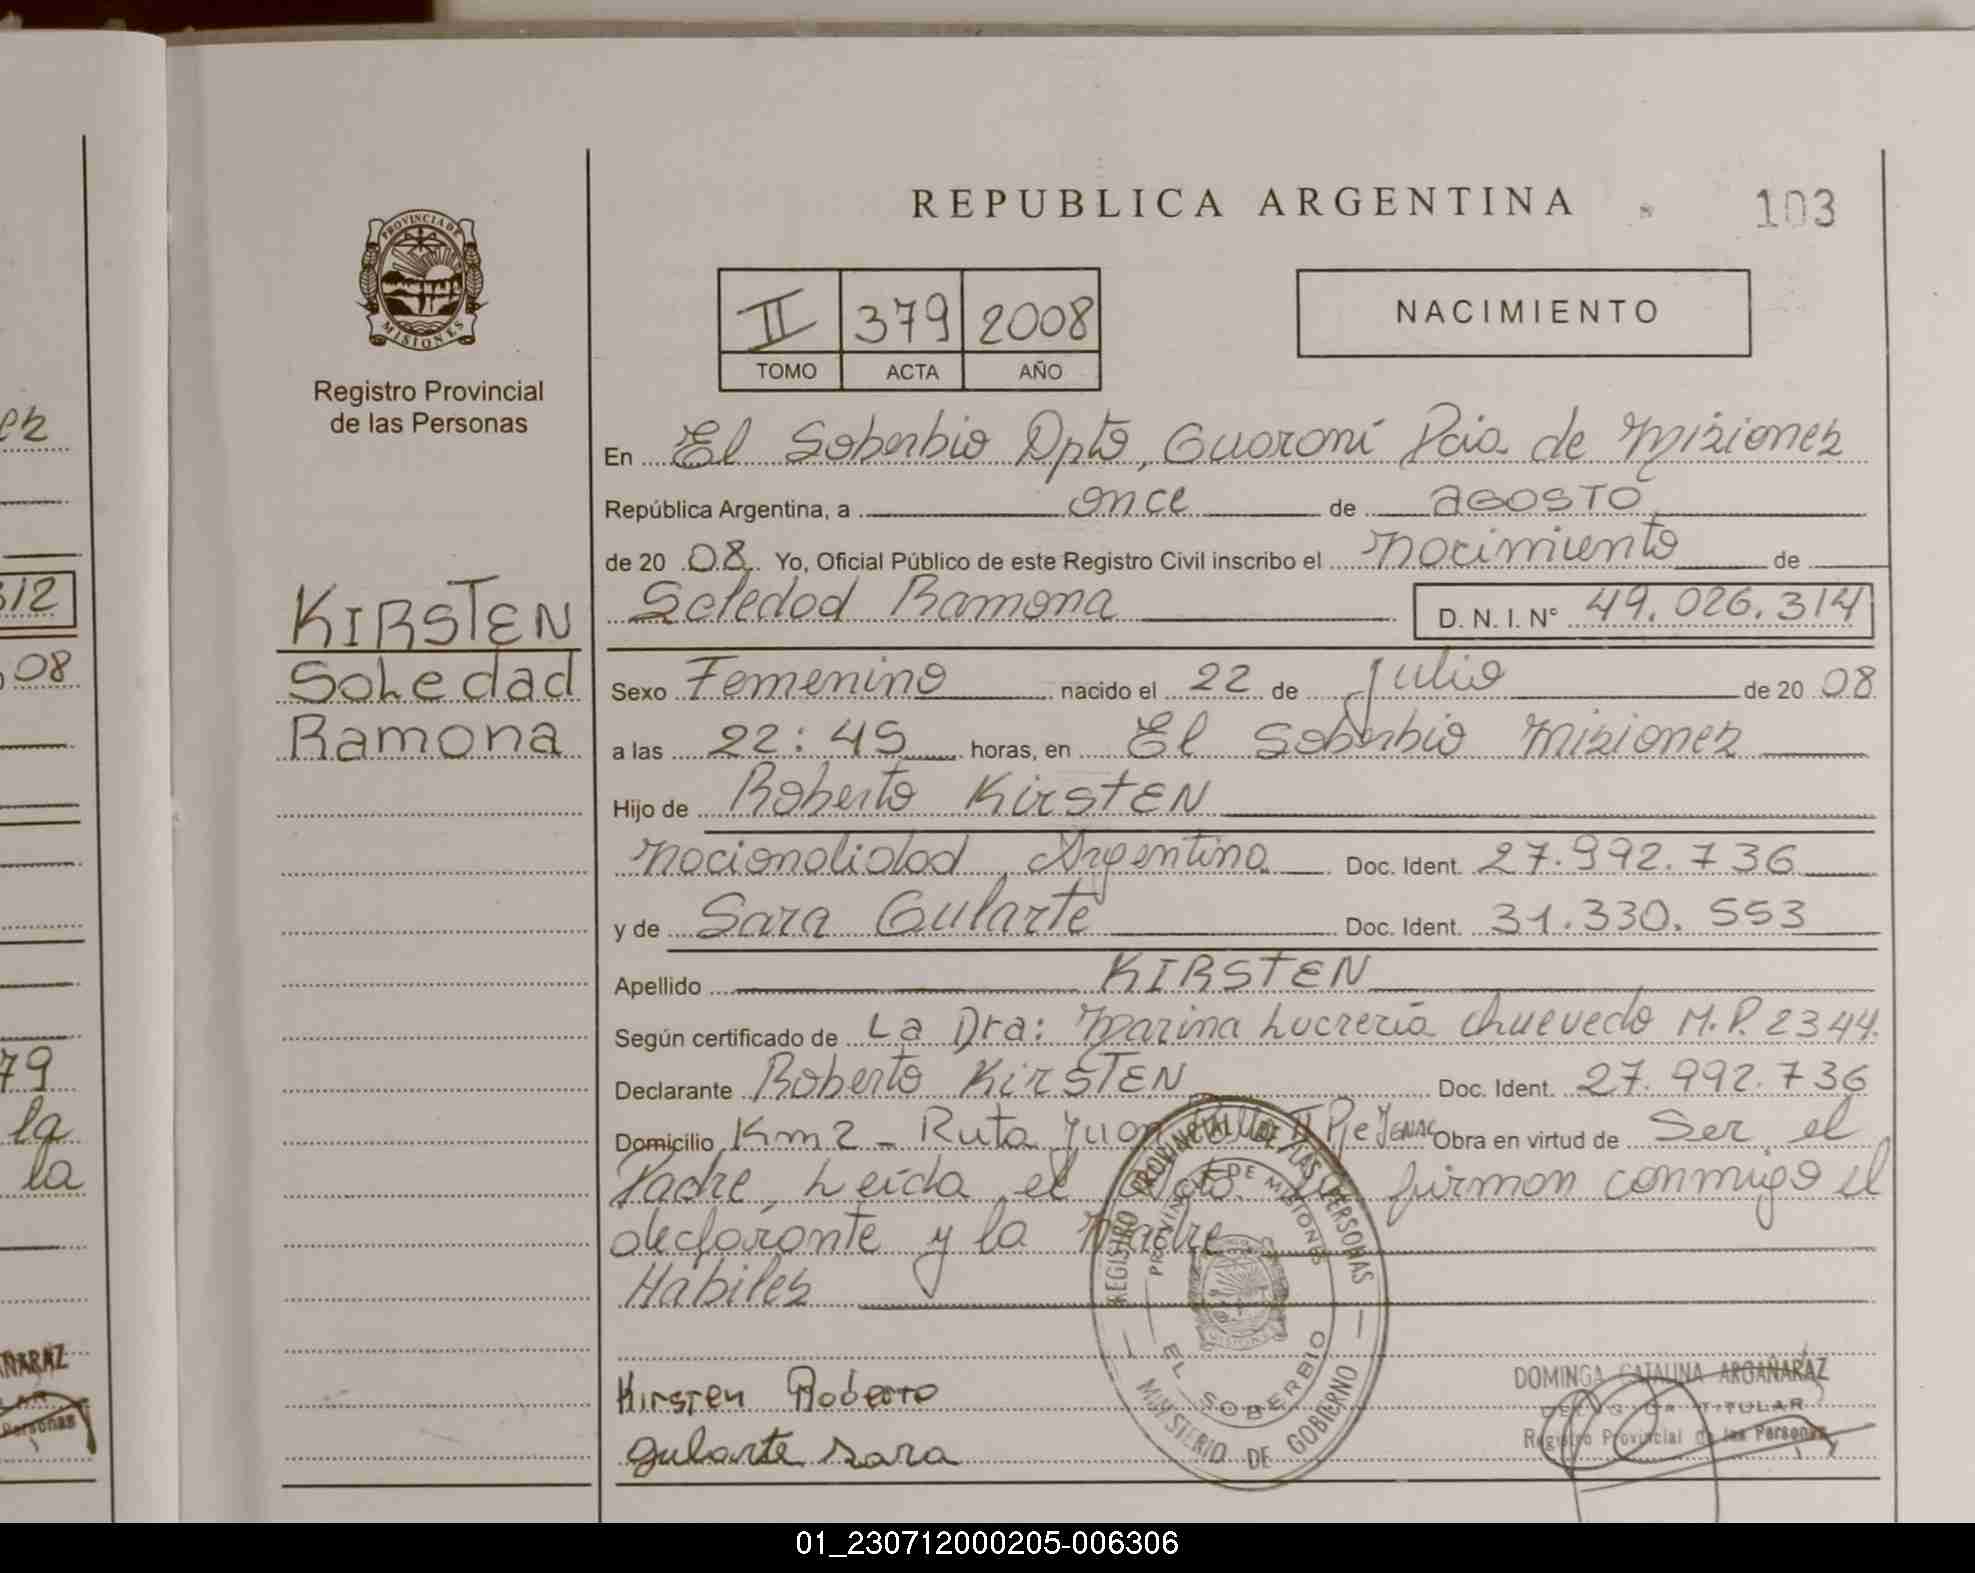 REPUBLICA ARGENTINA
103
PROVINCIA DE
MISIONES
Registro Provincial
de las Personas
II 379 2008
TOMO ACTA AÑO
NACIMIENTO
En El Soberbio Dpto, Guaraní Pcia de Misiones
República Argentina, a once de agosto
de 20 08 Yo, Oficial Público de este Registro Civil inscribo el nacimiento de
Soledad Ramona D. N. I. N° 49.026.314
KIRSTEN
Soledad
Ramona
Sexo Femenino nacido el 22 de Julio de 20 08
a las 22:45 horas, en El Soberbio Misiones
Hijo de Roberto Kirsten
nacionalidad Argentina Doc. Ident. 27.992.736
y de Sara Gularte Doc. Ident. 31.330.553
Apellido KIRSTEN
Según certificado de La Dra: Marina Lucrecia Chuevedo M.P. 2344.
Declarante Roberto Kirsten Doc. Ident. 27.992.736
Domicilio Km 2 - Ruta Juan Obra en virtud de Ser el
Padre, Leída el firman conmigo el
declarante y la Madre
Hábiles
Kirsten Roberto
gularte sara
REGISTRO PROVINCIAL DE LAS PERSONAS
PROVINCIA DE MISIONES
EL SOBERBIO
MINISTERIO DE GOBIERNO
DOMINGA CATALINA ARGAÑARAZ
TITULAR
Registro Provincial de las Personas
312
08
79
la
la
01_230712000205-006306